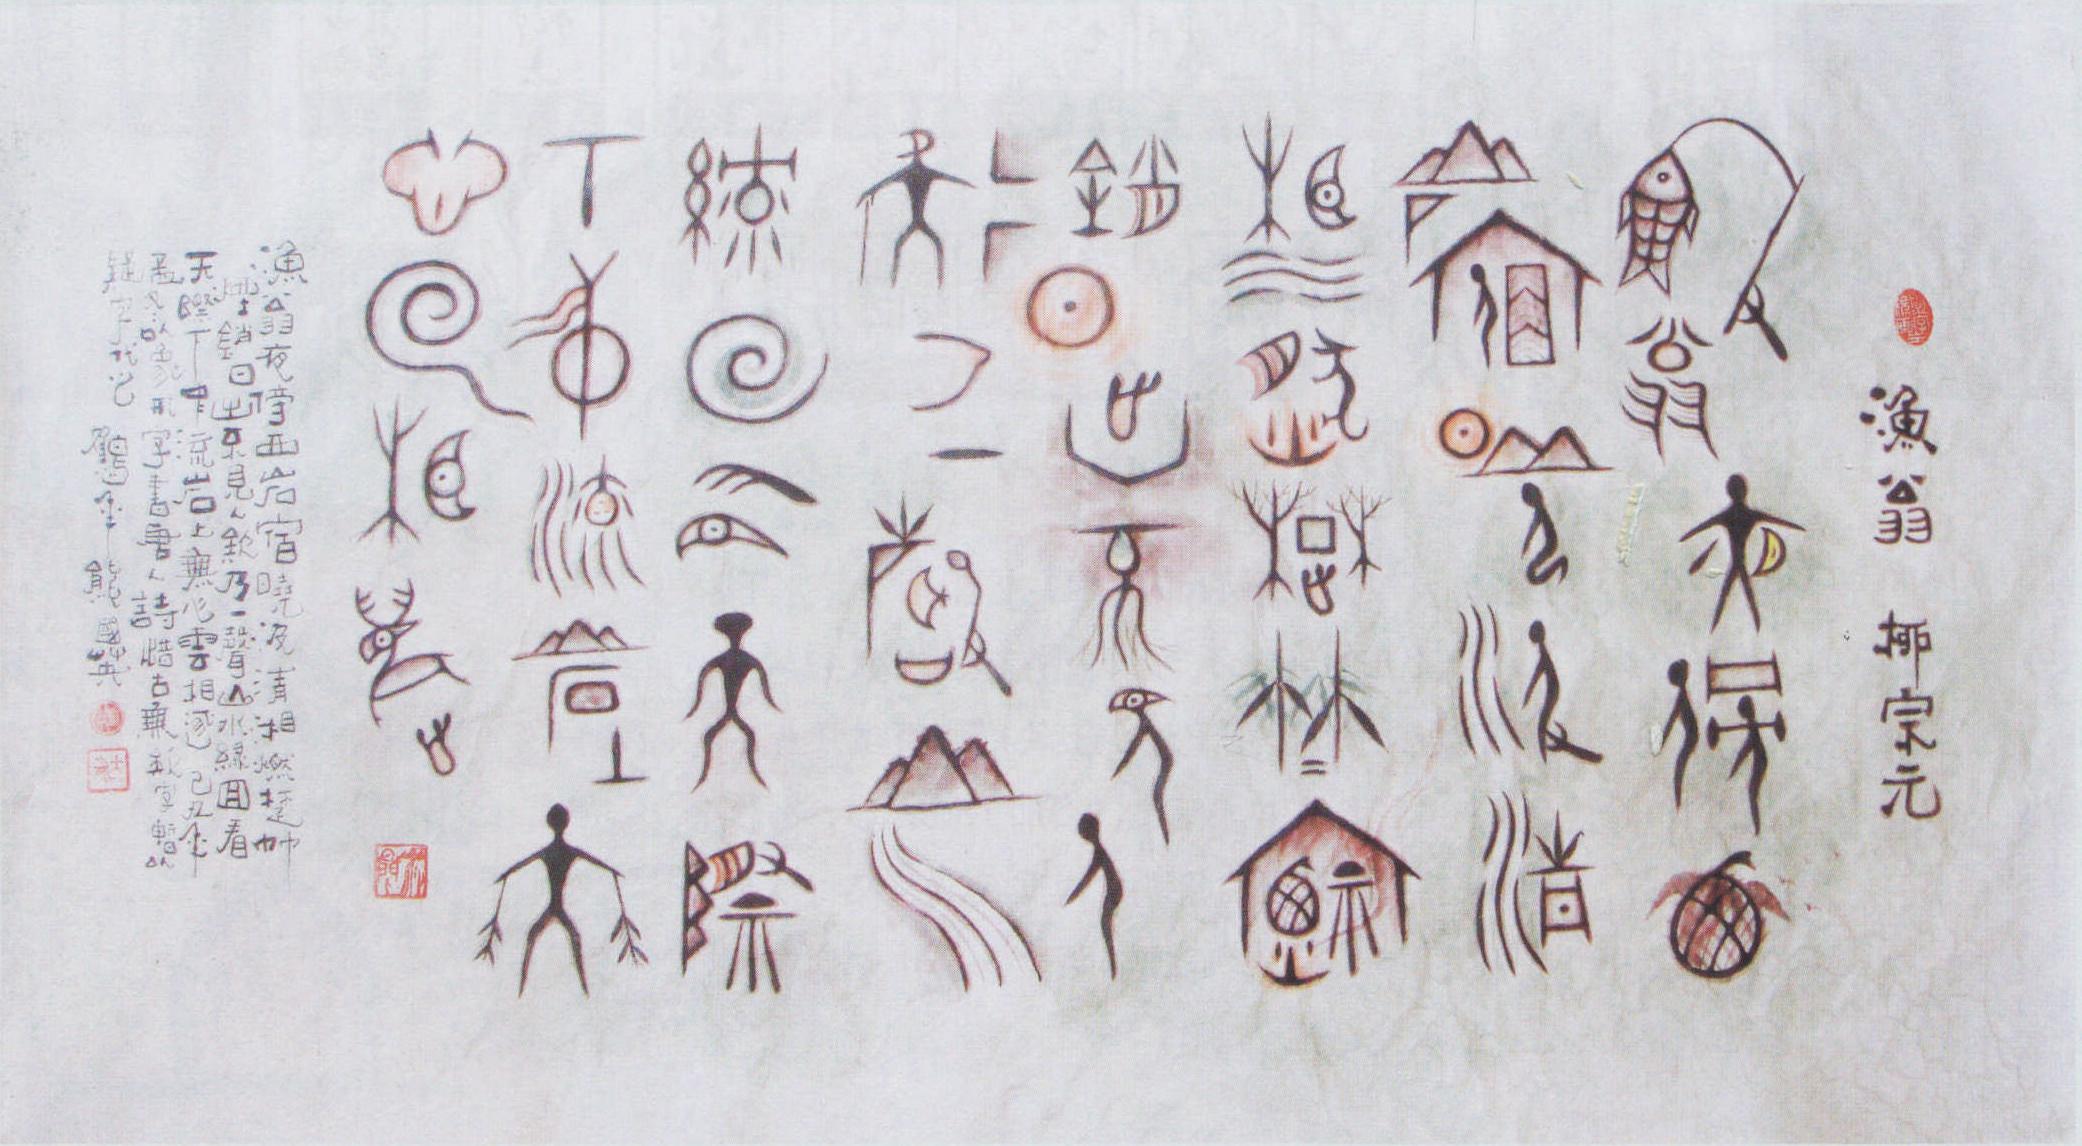 漁翁 柳宗元
漁翁夜傍西
岩宿曉汲清
湘燃楚竹煙
銷日出不見人
欸乃一聲山水
綠回看天際
下中流岩上無
心雲相逐
漁翁夜傍西岩宿曉汲清湘燃楚竹
煙銷日出不見人欸乃一聲山水綠回看
天際下中流岩上無心雲相逐 己丑年
孟冬以象形字書唐人詩惜古無欸字暫以
疑字代也 熊國英